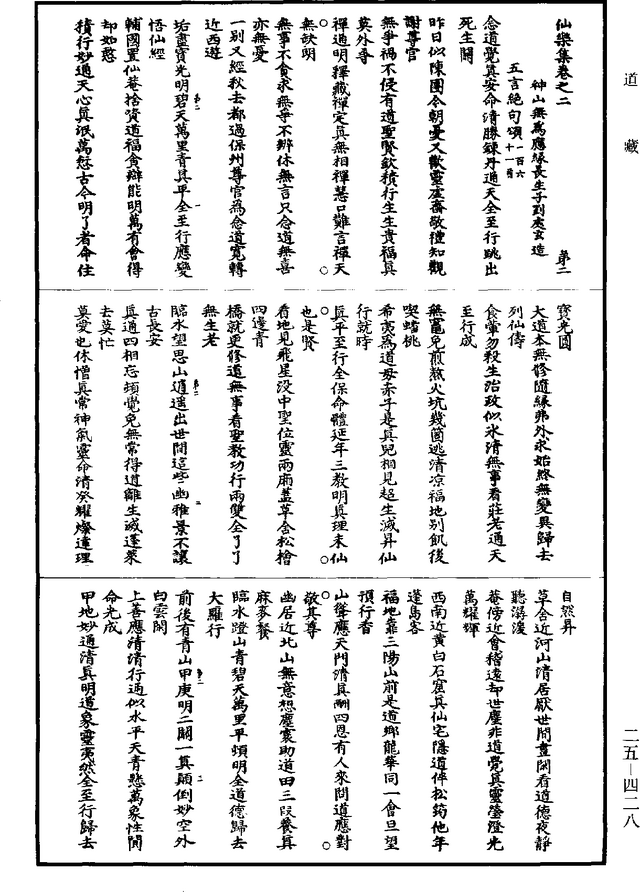 道藏
仙樂集卷之二
第二
神山無爲應緣長生子劉處玄造
五言絕句頌一百六十一首
念道覺真安命清勝鍊丹通天全至行跳出
死生關
昨日似陳團今朝憂又歡靈虛齋敬禮知觀
謝尊官
無爭禍不侵有道聖賢欽積行生生貴福真
莫外尋
禪通明釋藏禪定真無相禪慧口難言禪天
無欲明
無事不貪求無爭不辨休無言只念道無喜
亦無憂
一別又經秋去都過保州尊官爲念道寬轉
近西遊
垢盡寶光明碧天萬里青真平全至行應變
悟仙經
輔國置仙菴捨資道福貪辯能明萬有會得
却如憨
積行妙通天心真泯萬愆古今明了者命住
寶光圓
大道本無修隨緣弗外求始終無變異歸去
列仙儔
食葷勿殺生治政似水清無事看莊老通天
至行成
無竈免煎熬火坑幾箇逃清涼福地別飢後
喫蟠桃
希夷爲道母赤子是真兒相見超生滅昇仙
行就時
真平至行全保命體延年三教明真理未仙
也是賢
看地見飛星没中聖位靈兩廂蓋草舍松檜
四邊青
橋就更修道無事看聖教功行兩雙全了了
無生老
臨水望思山逍遥出世間這些幽雅景不讓
古長安
真通四相忘頓覺免無常得道離生滅蓬萊
去莫忙
莫愛也休憎真常神氣靈命清癸耀燦達理
自然昇
草舍近河山清居厭世間晝閑看道德夜靜
聽潺湲
菴傍近會稽遠却世塵非道覺真靈瑩澄光
萬耀輝
西南近黄白石窟真仙宅隱道倬松筠他年
蓬島客
福地靠三陽山前是道鄉龍華同一會旦望
預行香
山聳應天門清真酬四恩有人來問道應對
敬其尊
幽居近北山無意想塵寰助道田三段養真
麻麥餐
臨水蹬山青碧天萬里平頓明全道德歸去
大羅行
前後有青山甲庚明二關一真顛倒妙空外
白雲閑
上善應清清行通似水平天青懸萬象性閑
命光成
甲地妙通清真明道象靈夷然全至行歸去
二五—四二八